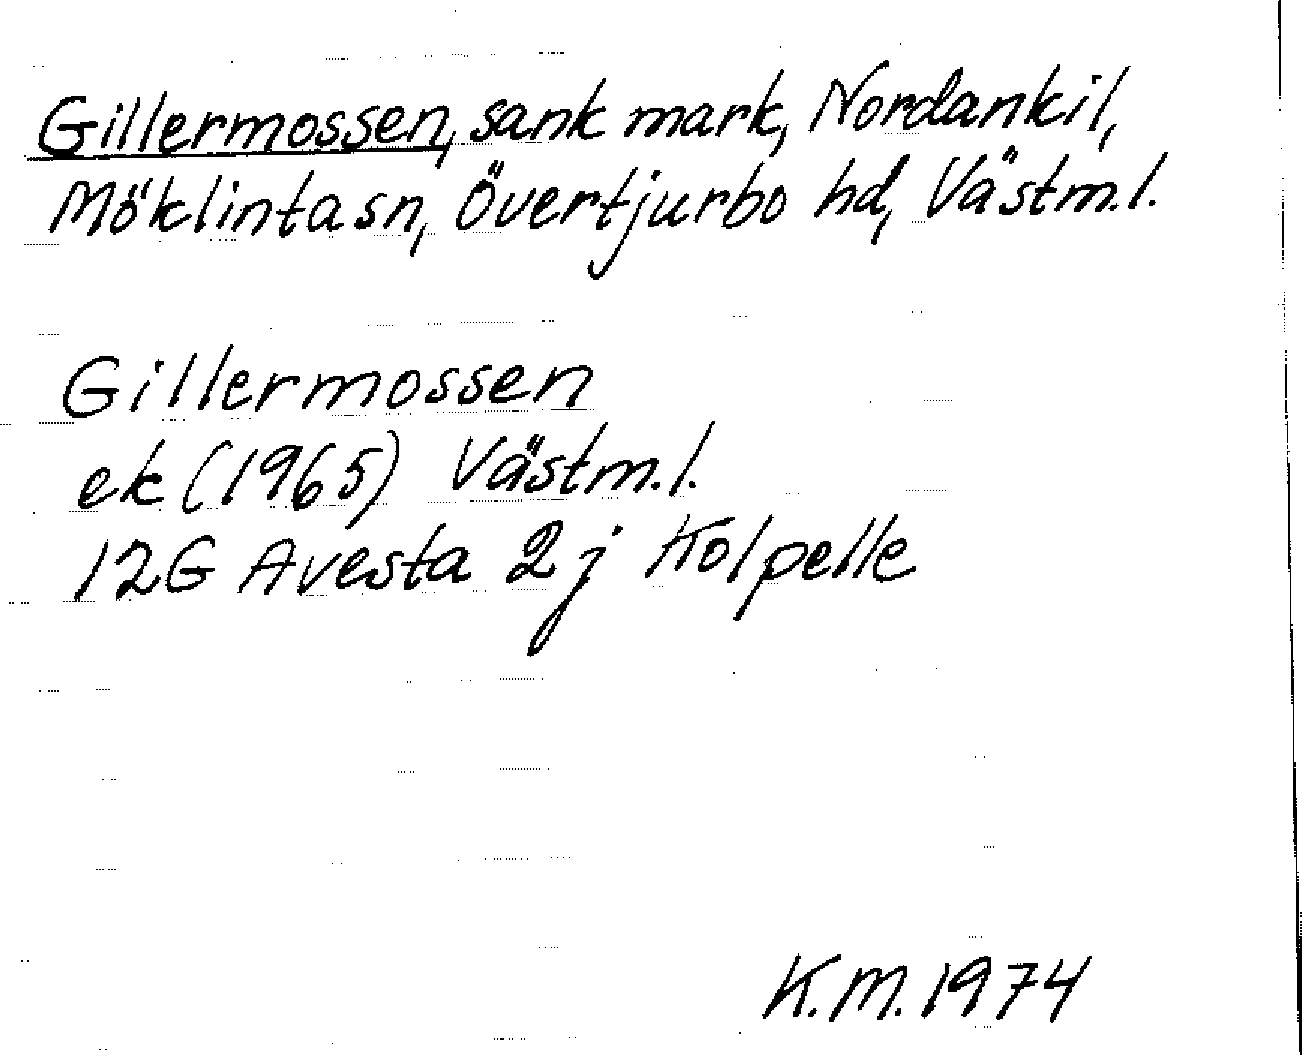 Gillermossen, sank mark, Nordankil,
Möklinta sn, Övertjurbo hd, Västm.l.
Gillermossen
ek (1965) Västm.l.
12G Avesta 2j Kolpelle
K.M. 1974